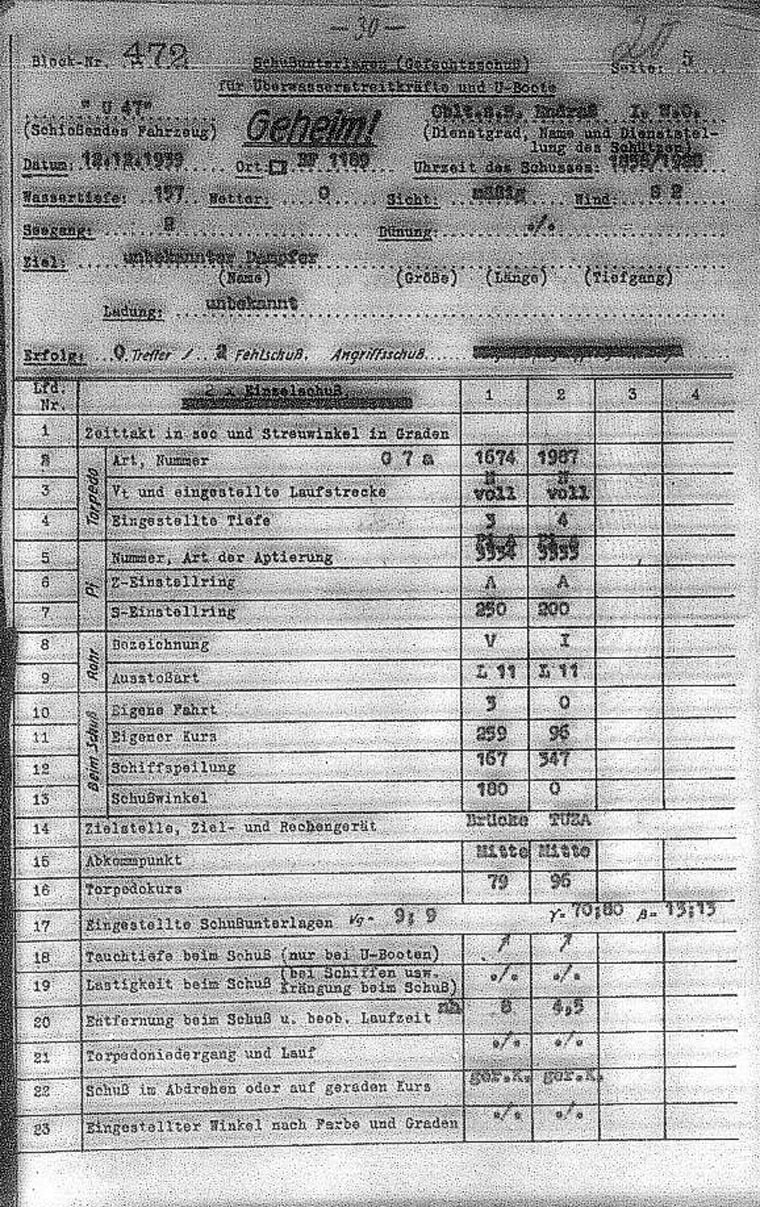 — 30 —
20
Block-Nr. 472 Schußunterlagen (Gefechtsschuß) Seite: 5
für Überwasserstreitkräfte und U-Boote
" U 47" Geheim! Oblt.z.S. Endraß I. W.O.
(Schießendes Fahrzeug) (Dienstgrad, Name und Dienststel-
lung des Schützen)
Datum: 12.12.1939 Ort: Uhrzeit des Schusses:
Wassertiefe: 157 Wetter: 0 Sicht: mäßig Wind: S 2
Seegang: 2 Dünung: ./.
Ziel: unbekannter Dampfer
(Name) (Größe) (Länge) (Tiefgang)
Ladung: unbekannt
Erfolg: 0 Treffer / 2 Fehlschuß, Angriffsschuß
Lfd. Nr. 2 x Einzelschuß 1 2 3 4
1 Zeittakt in sec und Streuwinkel in Graden
Torpedo
2 Art, Nummer G 7 a 1674 1987
3 Vt und eingestellte Laufstrecke H voll H voll
4 Eingestellte Tiefe 3 4
Pi
5 Nummer, Art der Aptierung Pi A Pi A
6 Z-Einstellring A A
7 S-Einstellring 250 200
Rohr
8 Bezeichnung V I
9 Ausstoßart L 11 L 11
Beim Schuß
10 Eigene Fahrt 3 0
11 Eigener Kurs 259 96
12 Schiffspeilung 167 347
13 Schußwinkel 180 0
14 Zielstelle, Ziel- und Rechengerät Brücke TUZA
15 Abkommpunkt Mitte Mitte
16 Torpedokurs 79 96
17 Eingestellte Schußunterlagen Vg= 9; 9 γ= 70;80 β= 13;13
18 Tauchtiefe beim Schuß (nur bei U-Booten)
19 Lastigkeit beim Schuß (bei Schiffen usw. Krängung beim Schuß) ./. ./.
20 Entfernung beim Schuß u. beob. Laufzeit hm 8 4,5
21 Torpedoniedergang und Lauf ./. ./.
22 Schuß im Abdrehen oder auf geraden Kurs ger.K. ger.K.
23 Eingestellter Winkel nach Farbe und Graden ./. ./.